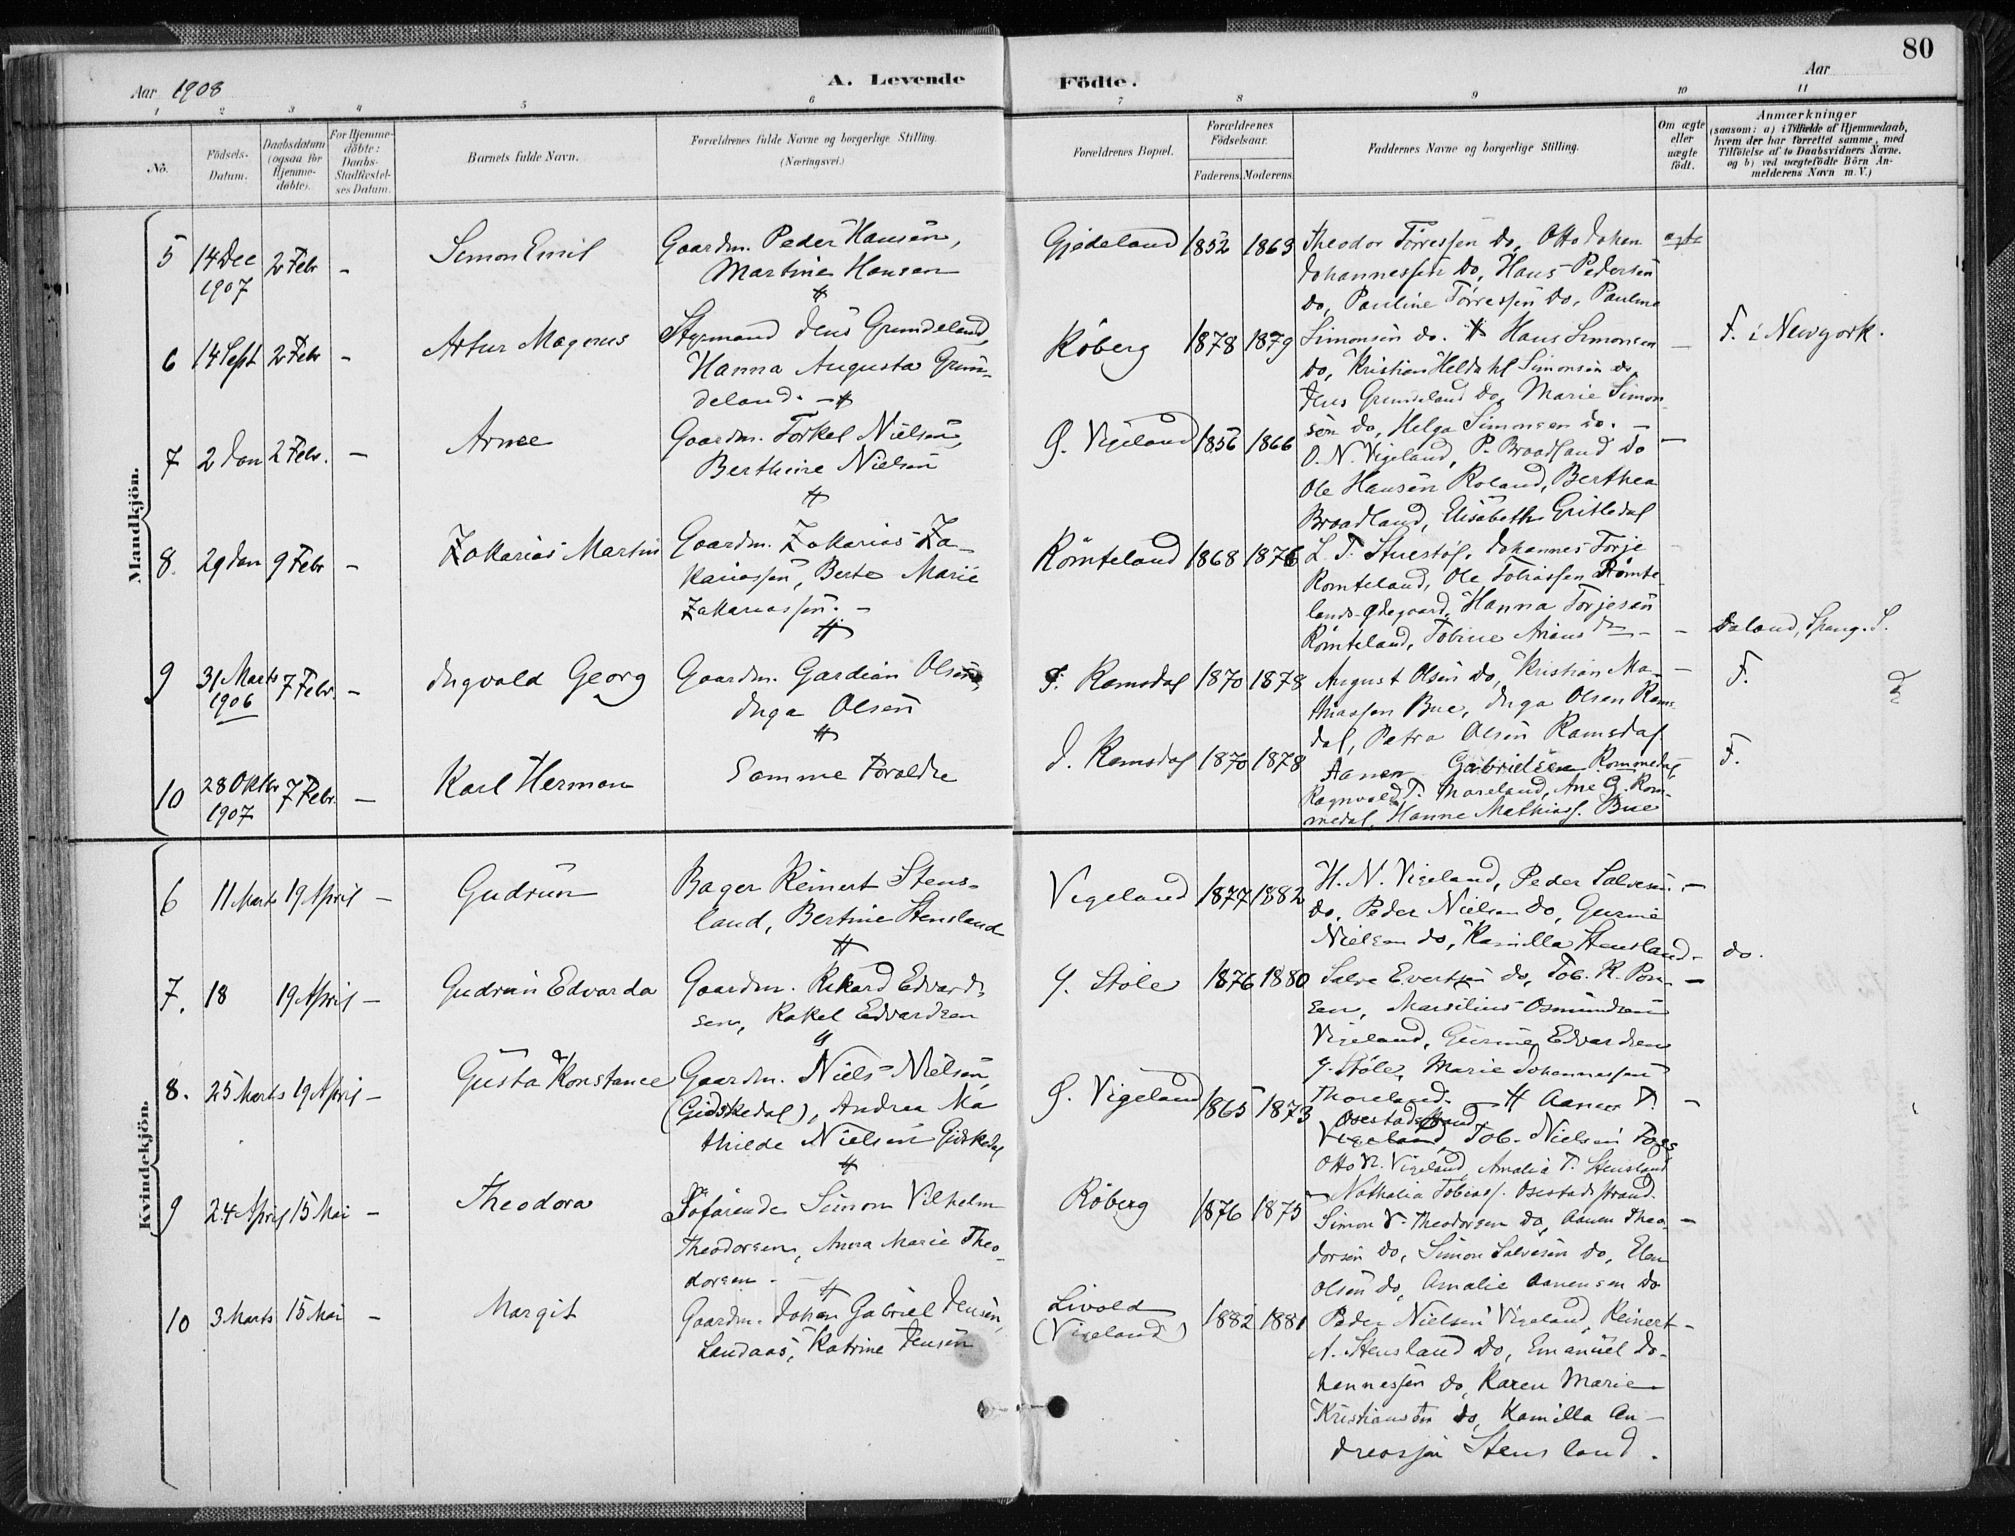 80
Aar 1908
A. Levende Födte.
Aar
1 2 3 4 5 6 7 8 9 10 11
No.
Födsels-Datum.
Daabsdatum (ogsaa for Hjemme-døbte).
For Hjemme-döbte: Daabs-Stadfæstel-ses Datum.
Barnets fulde Navn.
Forældrenes fulde Navne og borgerlige Stilling. (Næringsvei.)
Forældrenes Bopæl.
Forældrenes Födselsaar.
Faderens. Moderens.
Faddernes Navne og borgerlige Stilling.
Om ægte eller uægte födt.
Anmærkninger
(saasom: a) i Tilfælde af Hjemmedaab,
hvem der har forrettet samme, med
Tilföielse af to Daabsvidners Navne.
og b) ved uægtefödte Börn An-
melderens Navn m. V.)
Mandkjön.
5 14 Dec 1907 2 Febr - Simon Emil
Gaardm. Peder Hansen,
Martine Hansen
Gjedeland 1852 1863
Theodor Tørressen do, Otto Johan
Johannessen do, Hans Pedersen
do, Pauline Tørressen do, Paulina
Simonsen do.
ægte
6 14 Sept 2 Febr - Artur Magnus
Styrmand Jens Grundeland,
Hanna Augusta Grun-
deland. -
Røberg 1878 1879
Hans Simonsen
do, Kristian Heldahl Simonsen do,
Jens Grundeland do, Marie Simon-
sen do, Helga Simonsen do. -
F. i Newyork.
7 2 Jan 2 Febr. - Arne
Gaardm. Torkel Nielsen,
Berthine Nielsen
G. Vigeland 1856 1866
O. N. Vigeland, P. Braadland do
Ole Hansen Roland, Berthea
Braadland, Elisabeth Gritledal
8. 29 Jan 9 Febr - Zakarias Martin
Gaardm. Zakarias Za-
kariassen, Berte Marie
Zakariassen. -
Rømteland 1868 1876
L. T. Stuestøl, Johannes Torje
Romteland, Ole Tobiassen Rømte-
lands-Ødegaard, Hanna Torjesen
Rømteland, Tobine
Daland, Spang. S.
9 31 Marts 1906 7 Febr. - Ingvald Georg
Gaardm. Gardian Olsen,
Inga Olsen
I. Ramsdal 1870 1878
August Olsen do, Kristian Ma-
thiassen Bue, Inga Olsen Rams-
dal, Petra Olsen Ramsdal
F.
10 28 Oktbr 1907 7 Febr. - Karl Herman
Samme Forældre
I. Ramsdal 1870 1878
Aanen Gabrielsen Rommedal,
Ragnvald T. Møreland, Ane G. Rom-
medal, Hanne Mathiass. Bue
F.
Kvindekjön.
6 11 Marts 19 April - Gudrun
Bager Reinert Stens-
land, Bertine Stensland
Vigeland 1877 1882
H. N. Vigeland, Peder Salvesen -
do, Peder Nielsen do, Gurine
Nielsen do, Kamilla Stensland -
do.
7. 18 19 April - Gudrun Edvarda
Gaardm. Rikard Edvard-
sen, Rakel Edvardsen
Y. Støle 1876 1880
Salve Evertsen do, Tob. R.
Marselius Osmundsen
Vigeland, Gurine Edvardsen
Y. Støle, Marie Johannessen
Thoreland.
8. 25 Marts 19 April - Gusta Konstance
Gaardm. Niels Nielsen,
(Gidskedal), Andrea Ma
thilde Nielsen Gidskedal
G. Vigeland 1865 1873
Aanen T.
Osestadstrand,
Vigeland, Tob. Nielsen Foss
Otto N. Vigeland, Amalia T. Stensland
Nathalia Tobiass. Osestadstrand.
9 24 April 15 Mai - Theodora
Søfarende Simon Vilhelm
Theodorsen, Anna Marie Theo-
dorsen -
Røberg 1876 1875
Simon V. Theodorsen do, Aanen Theo-
dorsen do, Simon Salvesen do, Elen
Olsen do, Amalie Aanensen do
10 3 Marts 15 Mai - Margit
Gaardm. Johan Gabriel Jensen,
Landaas, Katrine Jensen
Livold
(Vigeland) 1882 1881
Peder Nielsen Vigeland, Reinert
A. Stensland do, Emanuel Jo-
hannessen do, Karen Marie
Kristiansen do, Kamilla An-
dreassen Stensland.